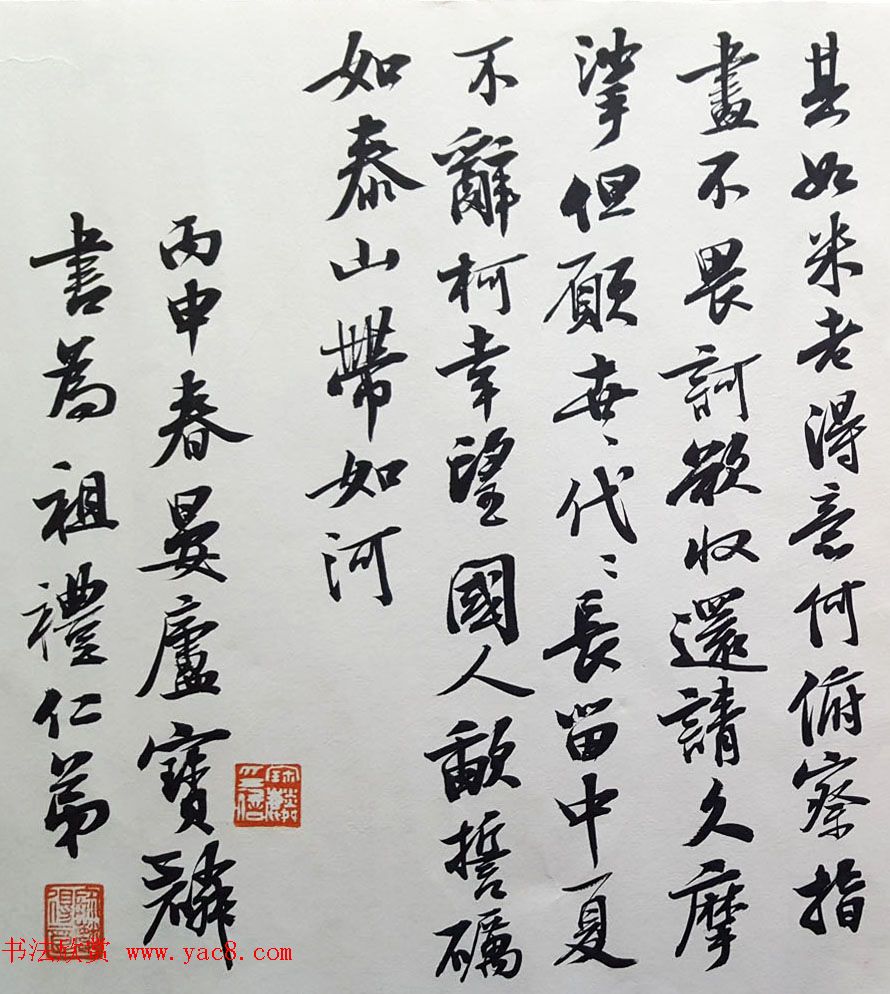 其如米老得意何俯察指
畫不畏訶欲收還請久摩
挲但願世、代〻長留中夏
不辭柯幸望國人歃誓礪
如泰山帶如河
丙申春晏廬寶麟
書為祖禮仁弟
书法欣赏 www.yac8.com